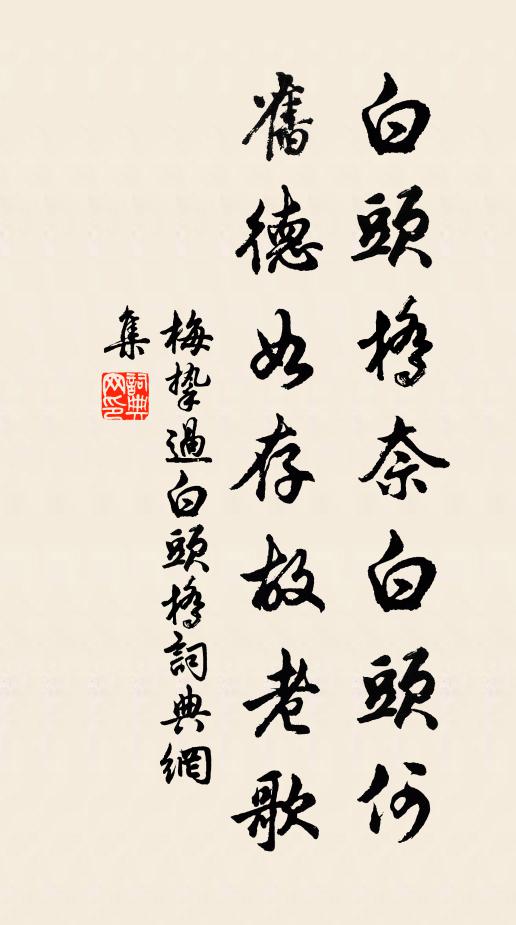 白頭橋奈白頭何
舊德如存故老歌
梅摯過白頭橋詞典網
集
詞典
网印